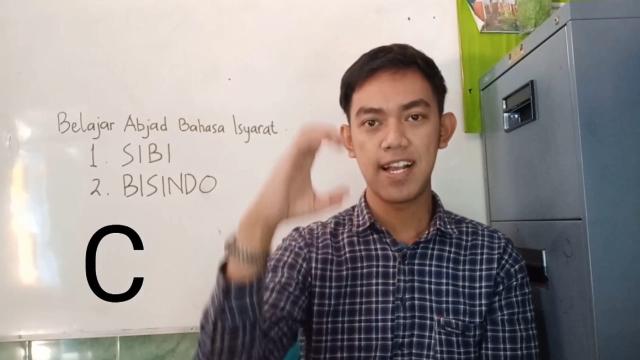 Belajar Abjad Bahasa Isyarat
1. SIBI
2. BISINDO
C